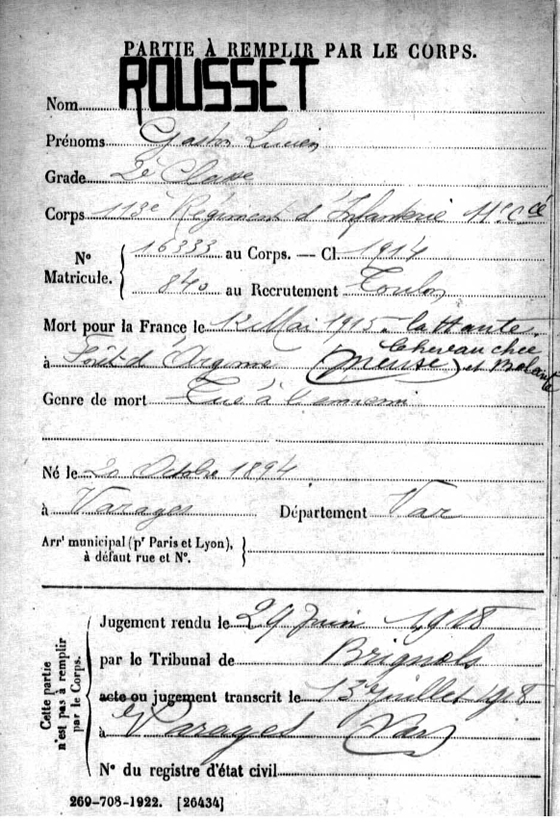 PARTIE À REMPLIR PAR LE CORPS.
Nom ROUSSET
Prénoms Gaston Lucien
Grade 2e Classe
Corps 113e Régiment d'Infanterie 11e Cie
No Matricule. 16333 au Corps. — Cl. 1914
840 au Recrutement Toulon
Mort pour la France le 12 Mai 1915 - la Haute
Chevauchée
à Forêt d'Argonne (Meuse) et
Genre de mort Tué à l'ennemi
Né le 20 Octobre 1894
à Varages Département Var
Arrt municipal (pr Paris et Lyon),
à défaut rue et No.
Cette partie
n'est pas à remplir
par le Corps.
Jugement rendu le 24 Juin 1918
par le Tribunal de Brignols
acte ou jugement transcrit le 13 juillet 1918
à Varages (Var)
No du registre d'état civil
269-708-1922. [26434]